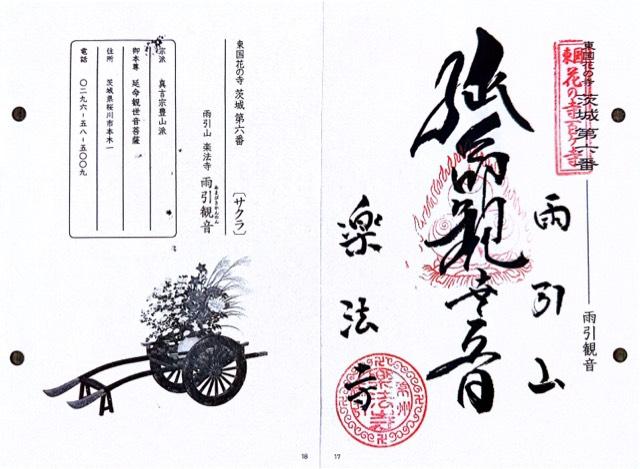 東国花の寺 茨城 第六番 雨引観音
東国花の寺百ヶ寺
雨引山
延命観世音
楽法寺
常州
17
東国花の寺 茨城 第六番 〔サクラ〕
雨引山 楽法寺 雨引観音
あまびきかんのん
宗派 真言宗豊山派
御本尊 延命観世音菩薩
住所 茨城県桜川市本木一
電話 〇二九六-五八-五〇〇九
18